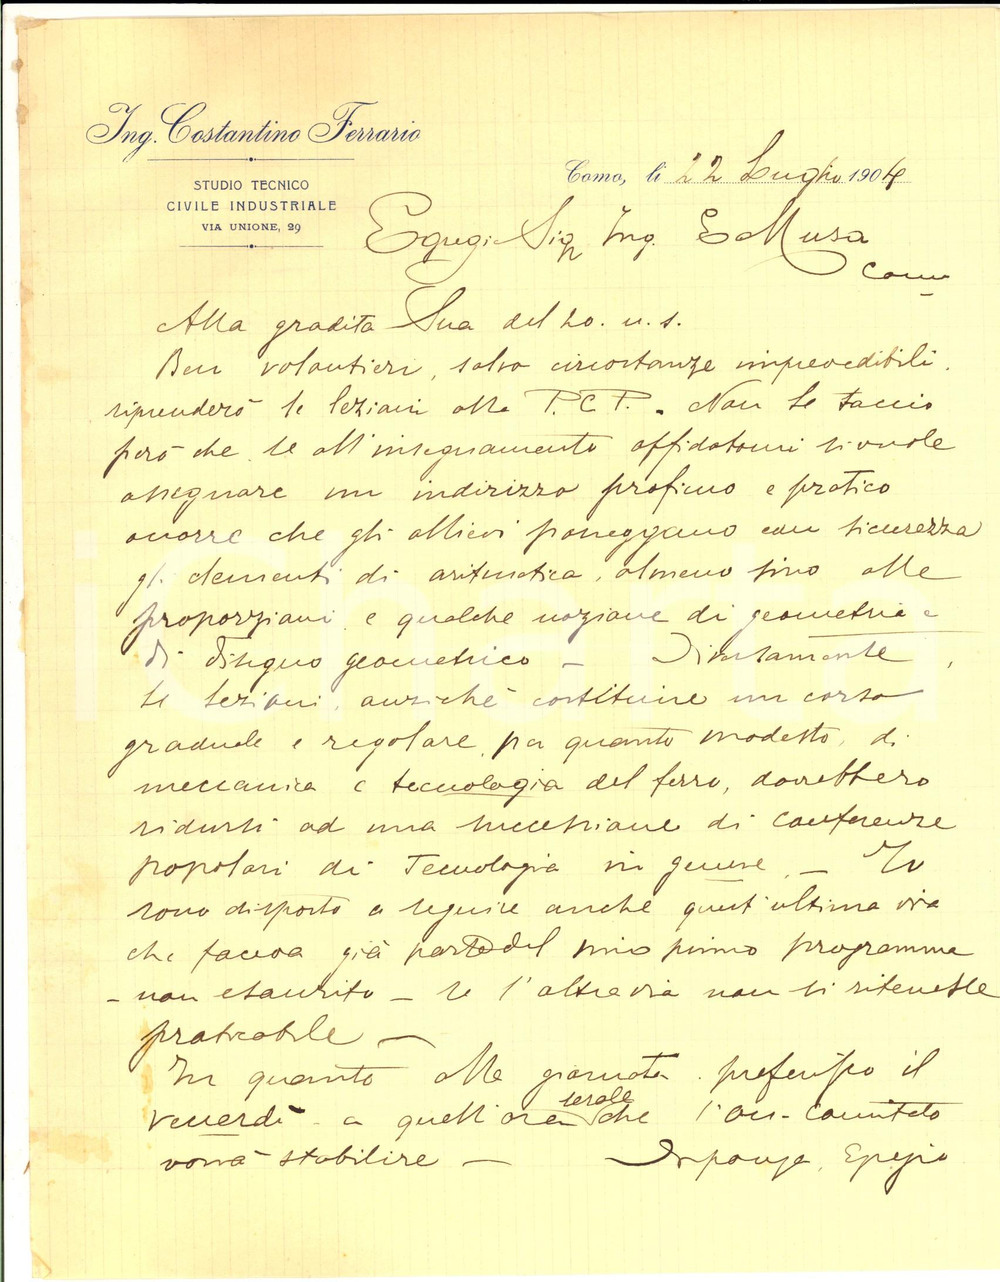 Ing. Costantino Ferrario
STUDIO TECNICO
CIVILE INDUSTRIALE
VIA UNIONE, 29
Como, li 22 Luglio 1904
Egregio Sig. Ing. E Musa
Como
Alla gradita Sua del 20. u. s.
Ben volontieri, salvo circostanze imprevedibili,
riprenderò le lezioni alla P.C.P. . Non Le taccio
però che se all'insegnamento affidatomi si vuole
assegnare un indirizzo proficuo e pratico
occorre che gli allievi posseggano con sicurezza
gli elementi di aritmetica, almeno fino alle
proporzioni e qualche nozione di geometria e
di disegno geometrico - Diversamente,
le lezioni, anzichè costituire un corso
graduale e regolare, per quanto modesto, di
meccanica e tecnologia del ferro, dovrebbero
ridursi ad una successione di conferenze
popolari di Tecnologia in genere. - Io
sono disposto a seguire anche quest'ultima via
che faceva già parte del mio primo programma
- non esaurito - se l'altra via non si ritenesse
praticabile -
In quanto alla giornata preferisco il
venerdì - a quell'ora serale che l'On. Comitato
vorrà stabilire - Egregio
iCharta